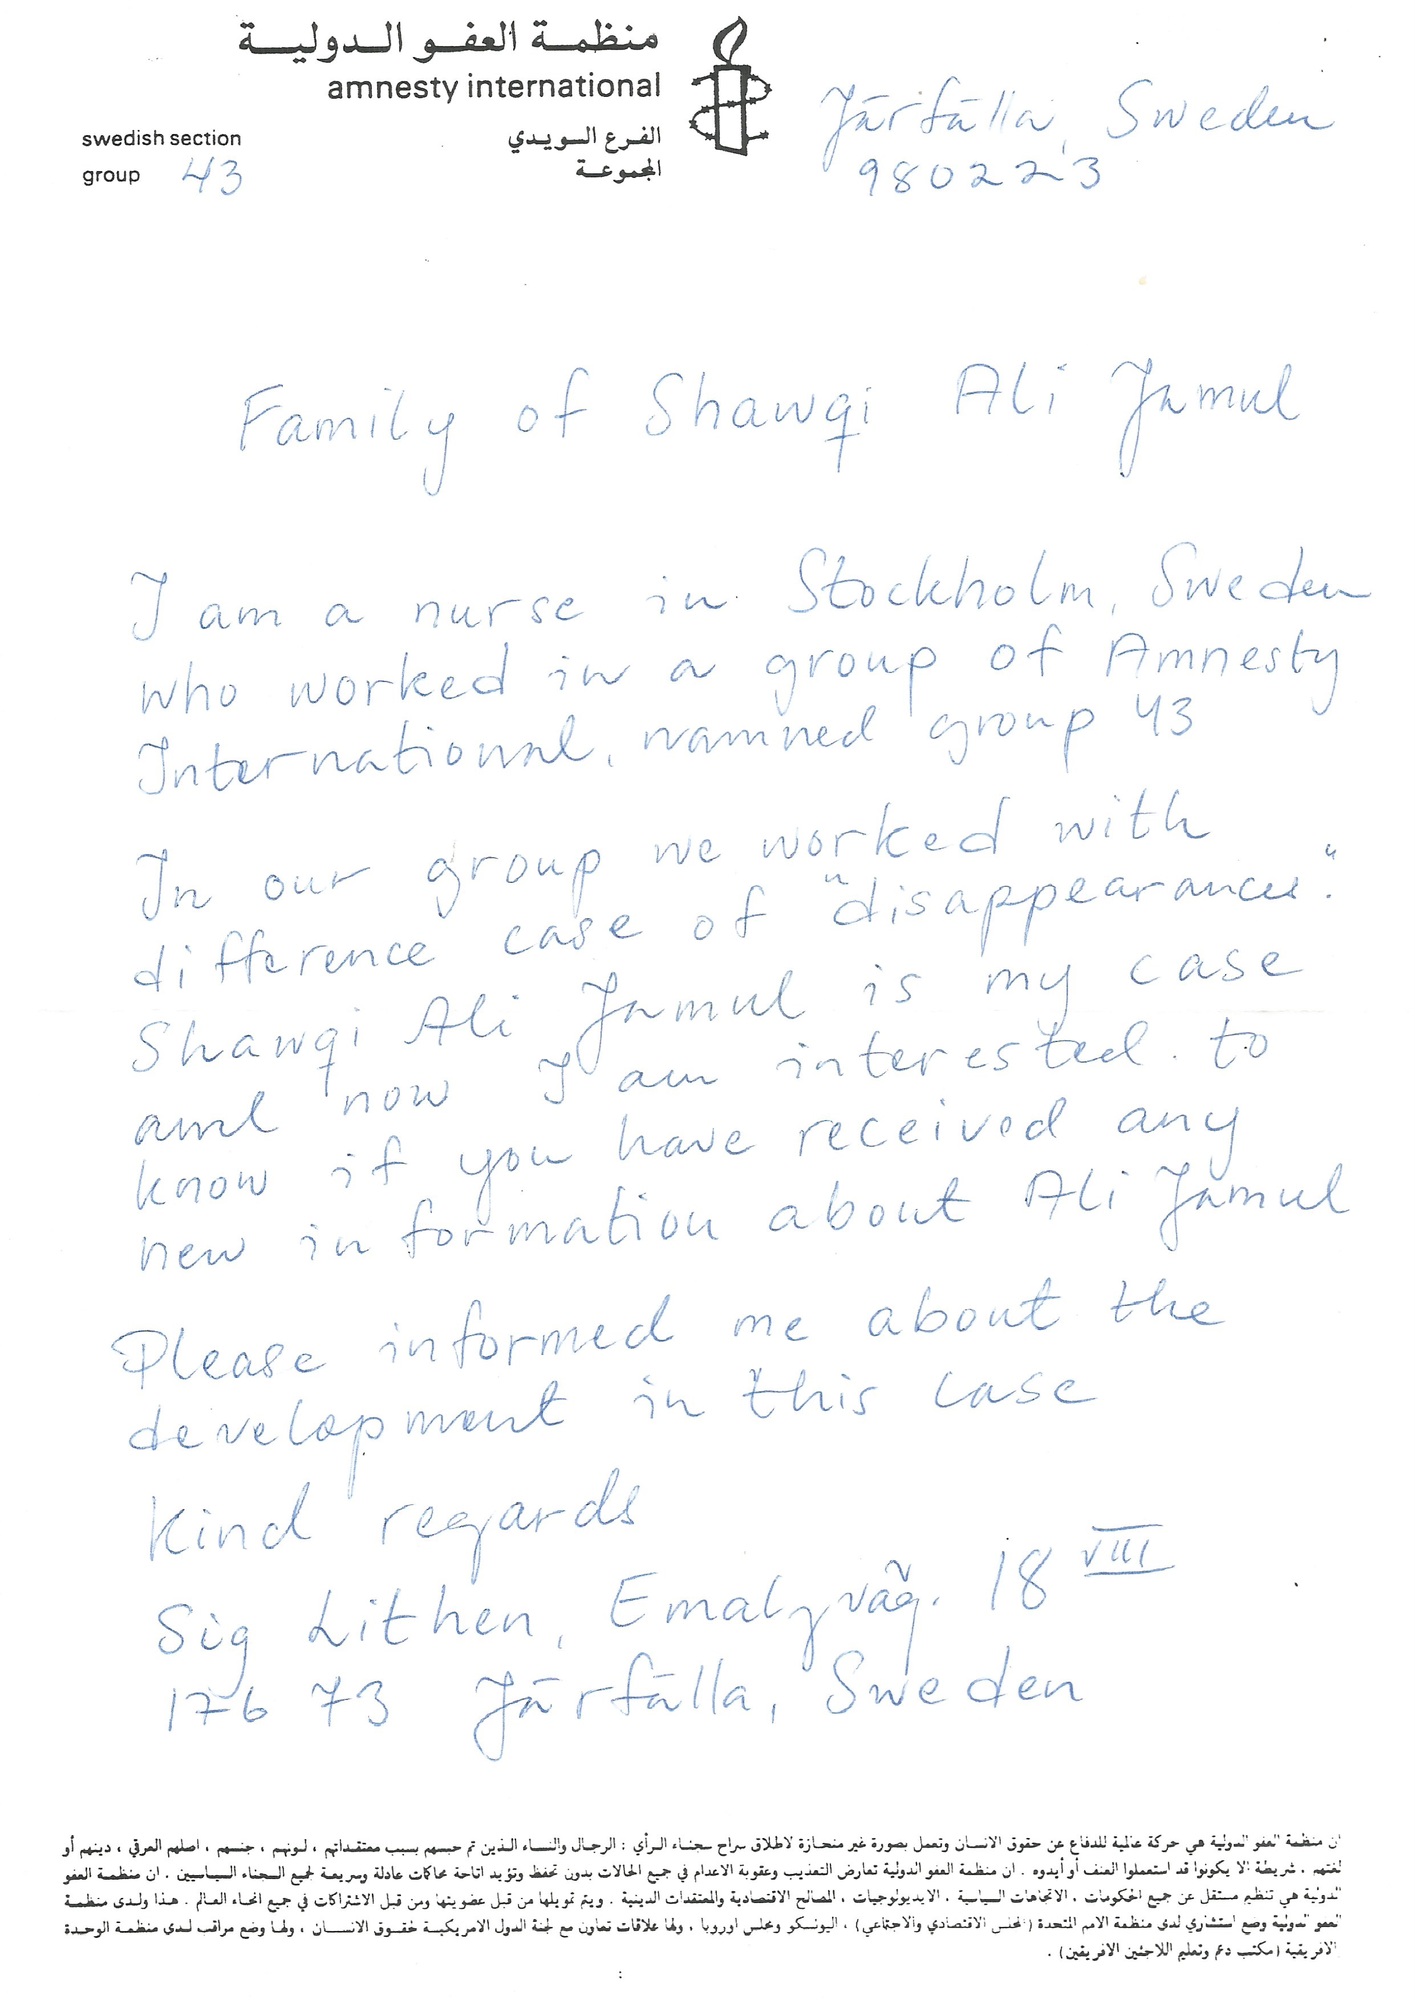 منظمة العفو الدولية
amnesty international
swedish section
الفرع السويدي
group 43
المجموعة
Järfälla, Sweden
980223
Family of Shawqi Ali Jamul
I am a nurse in Stockholm, Sweden
who worked in a group of Amnesty
International, namned group 43
In our group we worked with
difference case of "disappearances".
Shawqi Ali Jamul is my case
and now I am interested to
know if you have received any
new information about Ali Jamul
Please informed me about the
development in this case
Kind regards
Sig Lithen, Emaljväg. 18 VIII
176 73 Järfälla, Sweden
ان منظمة العفو الدولية هي حركة عالمية للدفاع عن حقوق الانسان وتعمل بصورة غير منحازة لاطلاق سراح سجناء الرأي : الرجال والنساء الذين تم حبسهم بسبب معتقداتهم ، لونهم ، جنسهم ، اصلهم العرقي ، دينهم أو
لغتهم ، شريطة الا يكونوا قد استعملوا العنف أو أيدوه . ان منظمة العفو الدولية تعارض التعذيب وعقوبة الاعدام في جميع الحالات بدون تحفظ وتؤيد اتاحة محاكمات عادلة وسريعة لجميع السجناء السياسيين . ان منظمة العفو
الدولية هي تنظيم مستقل عن جميع الحكومات ، الاتجاهات السياسية ، الايديولوجيات ، المصالح الاقتصادية والمعتقدات الدينية . ويتم تمويلها من قبل عضويتها ومن قبل الاشتراكات في جميع انحاء العالم . هذا ولدى منظمة
العفو الدولية وضع استشاري لدى منظمة الامم المتحدة (المجلس الاقتصادي والاجتماعي) ، اليونسكو ومجلس اوروبا ، ولها علاقات تعاون مع لجنة الدول الامريكية لحقوق الانسان ، ولها وضع مراقب لدى منظمة الوحدة
الافريقية (مكتب دعم وتعليم اللاجئين الافريقين) .